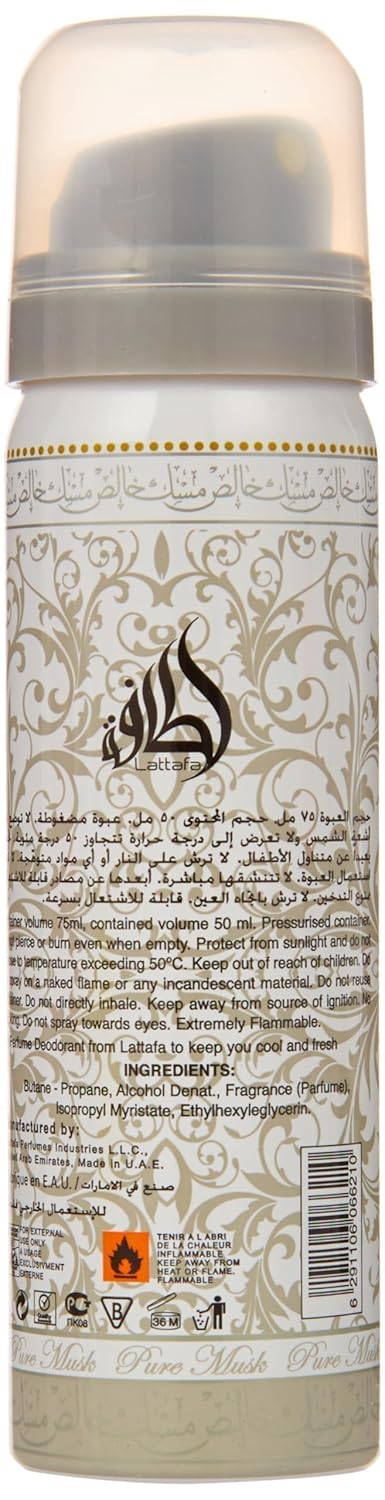 خالص مسك خالص مسك خالص مسك
لطافة
Lattafa
حجم العبوة ٧٥ مل. حجم المحتوى ٥٠ مل. عبوة مضغوطة. لا توضع
أشعة الشمس ولا تعرض إلى درجة حرارة تتجاوز ٥٠ درجة مئوية.
بعيداً عن متناول الأطفال. لا ترش على النار أو أي مواد متوهجة. لا
استعمال العبوة. لا تتنشقها مباشرة. أبعدها عن مصادر قابلة للاشتعال
ممنوع التدخين. لا ترش باتجاه العين. قابلة للاشتعال بسرعة.
ainer volume 75ml, contained volume 50 ml. Pressurised container.
not pierce or burn even when empty. Protect from sunlight and do not
ose to temperature exceeding 50ºC. Keep out of reach of children. Do
spray on a naked flame or any incandescent material. Do not reuse
tainer. Do not directly inhale. Keep away from source of ignition. No
king. Do not spray towards eyes. Extremely Flammable.
Parfume Deodorant from Lattafa to keep you cool and fresh
INGREDIENTS:
Butane - Propane, Alcohol Denat., Fragrance (Parfume),
Isopropyl Myristate, Ethylhexyleglycerin.
anufactured by:
tafa Perfumes Industries L.L.C.,
ted Arab Emirates, Made in U.A.E.
rique en E.A.U / صنع في الامارات
للإستعمال الخارجي فقط
FOR EXTEPNAL
USE ONLY
A USAGE
EXCLUSIVMENT
EXTERNE
TENIR A L ABRI
DE LA CHALEUR
INFLAMMABLE
KEEP AWAY FROM
HEAT OR FLAME.
FLAMMABLE
6 291106 066210
ПК08
B
36 M
Pure Musk Pure Musk Pure Musk